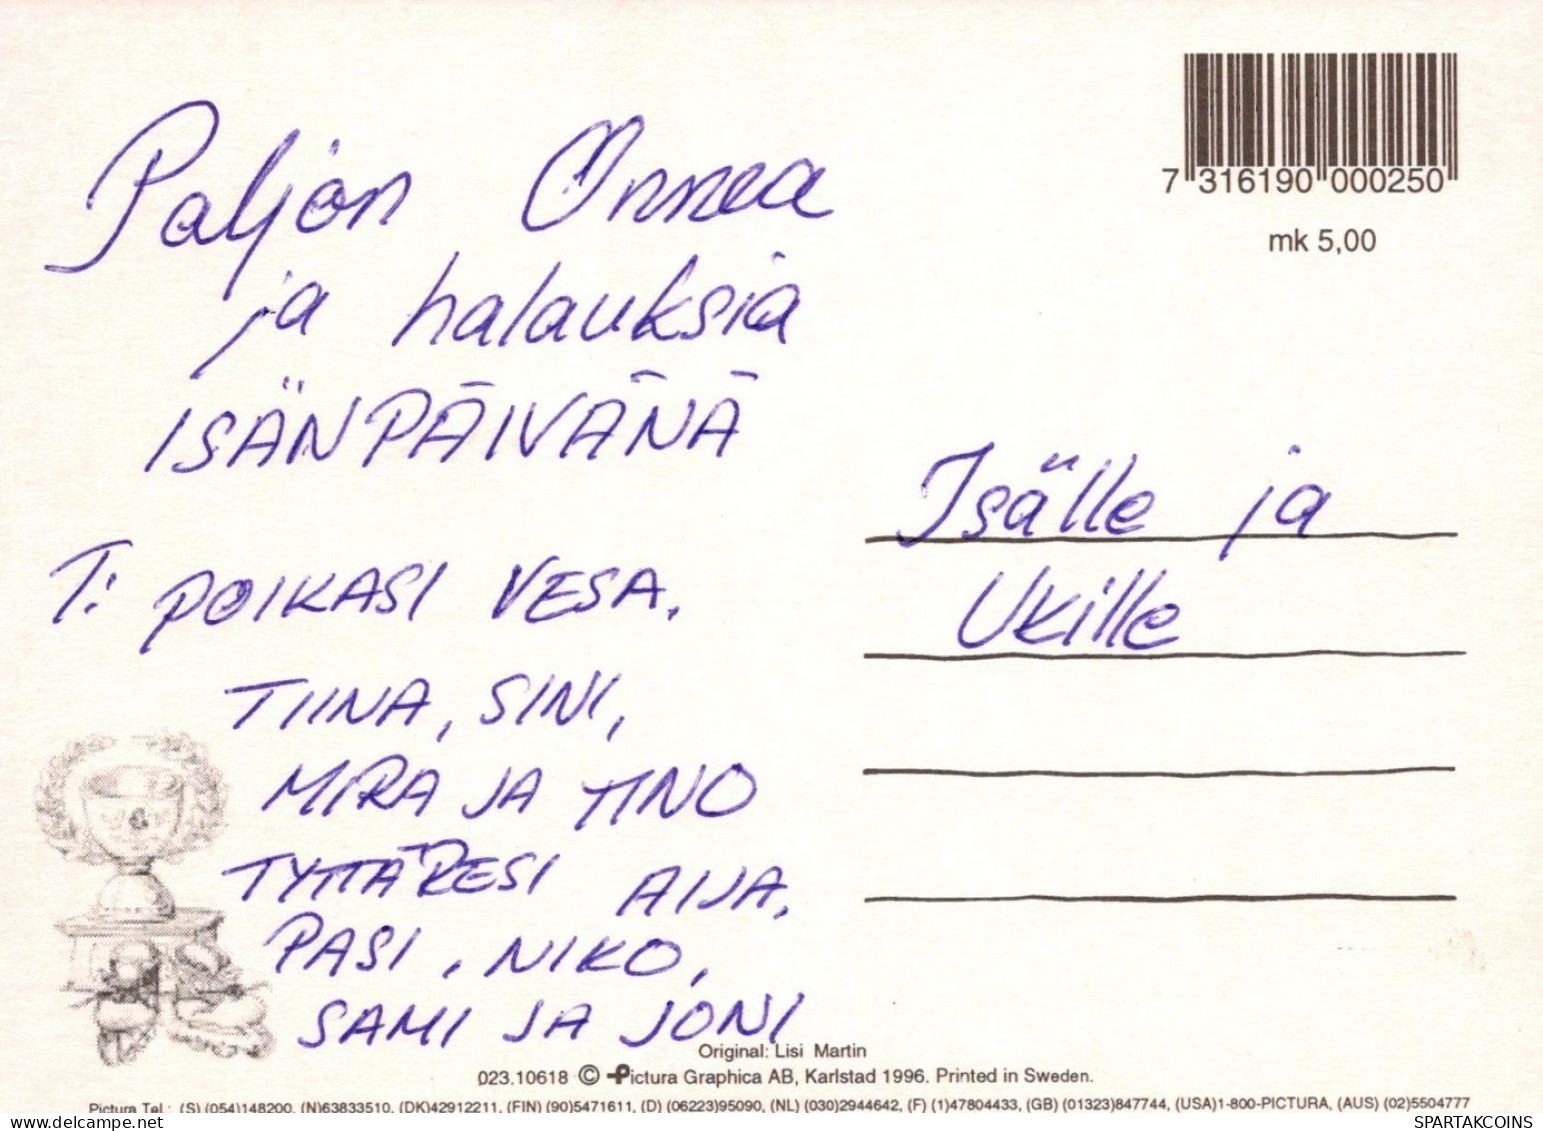 Paljon Onnea
ja halauksia
ISÄNPÄIVÄNÄ
T: POIKASI VESA,
TIINA, SINI,
MIRA JA TINO
TYTTÄRESI AIJA,
PASI, NIKO,
SAMI JA JONI
7 316190 000250
mk 5,00
Isälle ja
Ukille
Original: Lisi Martin
023.10618 © Pictura Graphica AB, Karlstad 1996. Printed in Sweden.
Pictura Tel.: (S) (054)148200, (N)63833510, (DK)42912211, (FIN) (90)5471611, (D) (06223)95090, (NL) (030)2944642, (F) (1)47804433, (GB) (01323)847744, (USA)1-800-PICTURA, (AUS) (02)5504777
SPARTAKCOINS